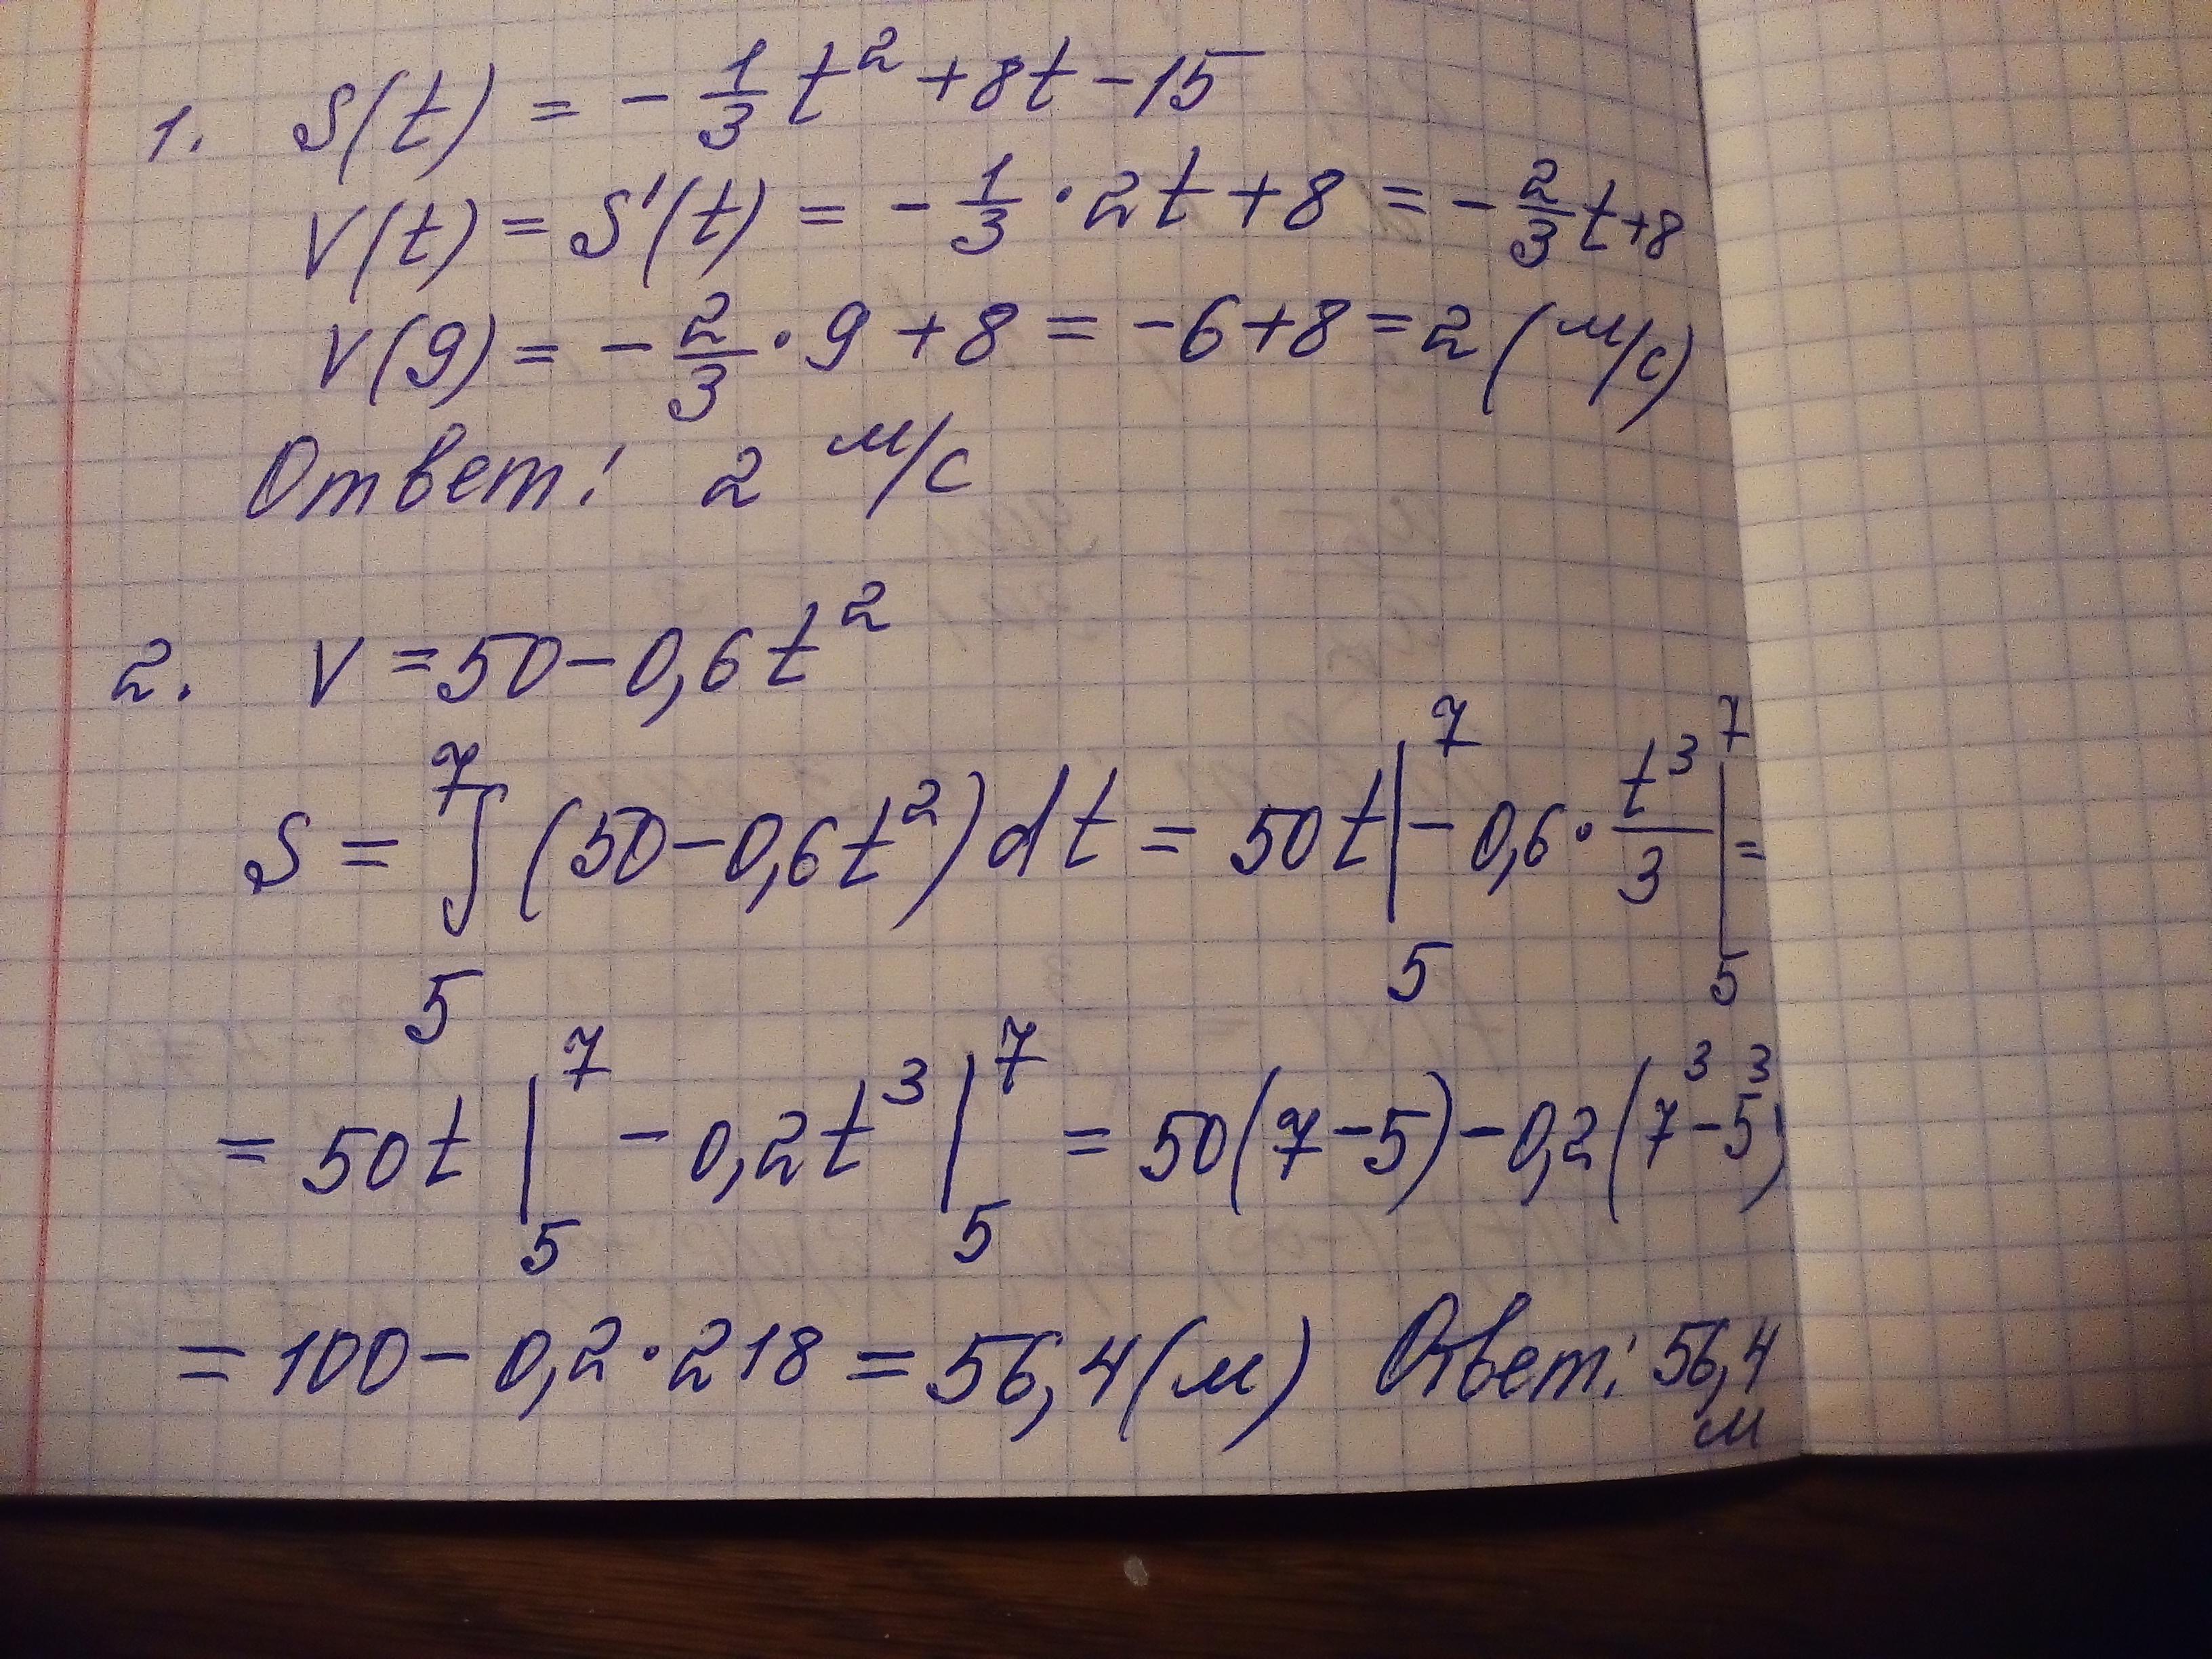 1. S(t) = -1/3 t² + 8t - 15
V(t) = S'(t) = -1/3 · 2t + 8 = -2/3 t + 8
V(9) = -2/3 · 9 + 8 = -6 + 8 = 2 (м/с)
Ответ: 2 м/с
2. V = 50 - 0,6t²
S = ∫₅⁷ (50 - 0,6t²) dt = 50t|₅⁷ - 0,6 · t³/3 |₅⁷ =
= 50t |₅⁷ - 0,2t³ |₅⁷ = 50(7-5) - 0,2(7³-5³)
= 100 - 0,2 · 218 = 56,4 (м) Ответ: 56,4
м